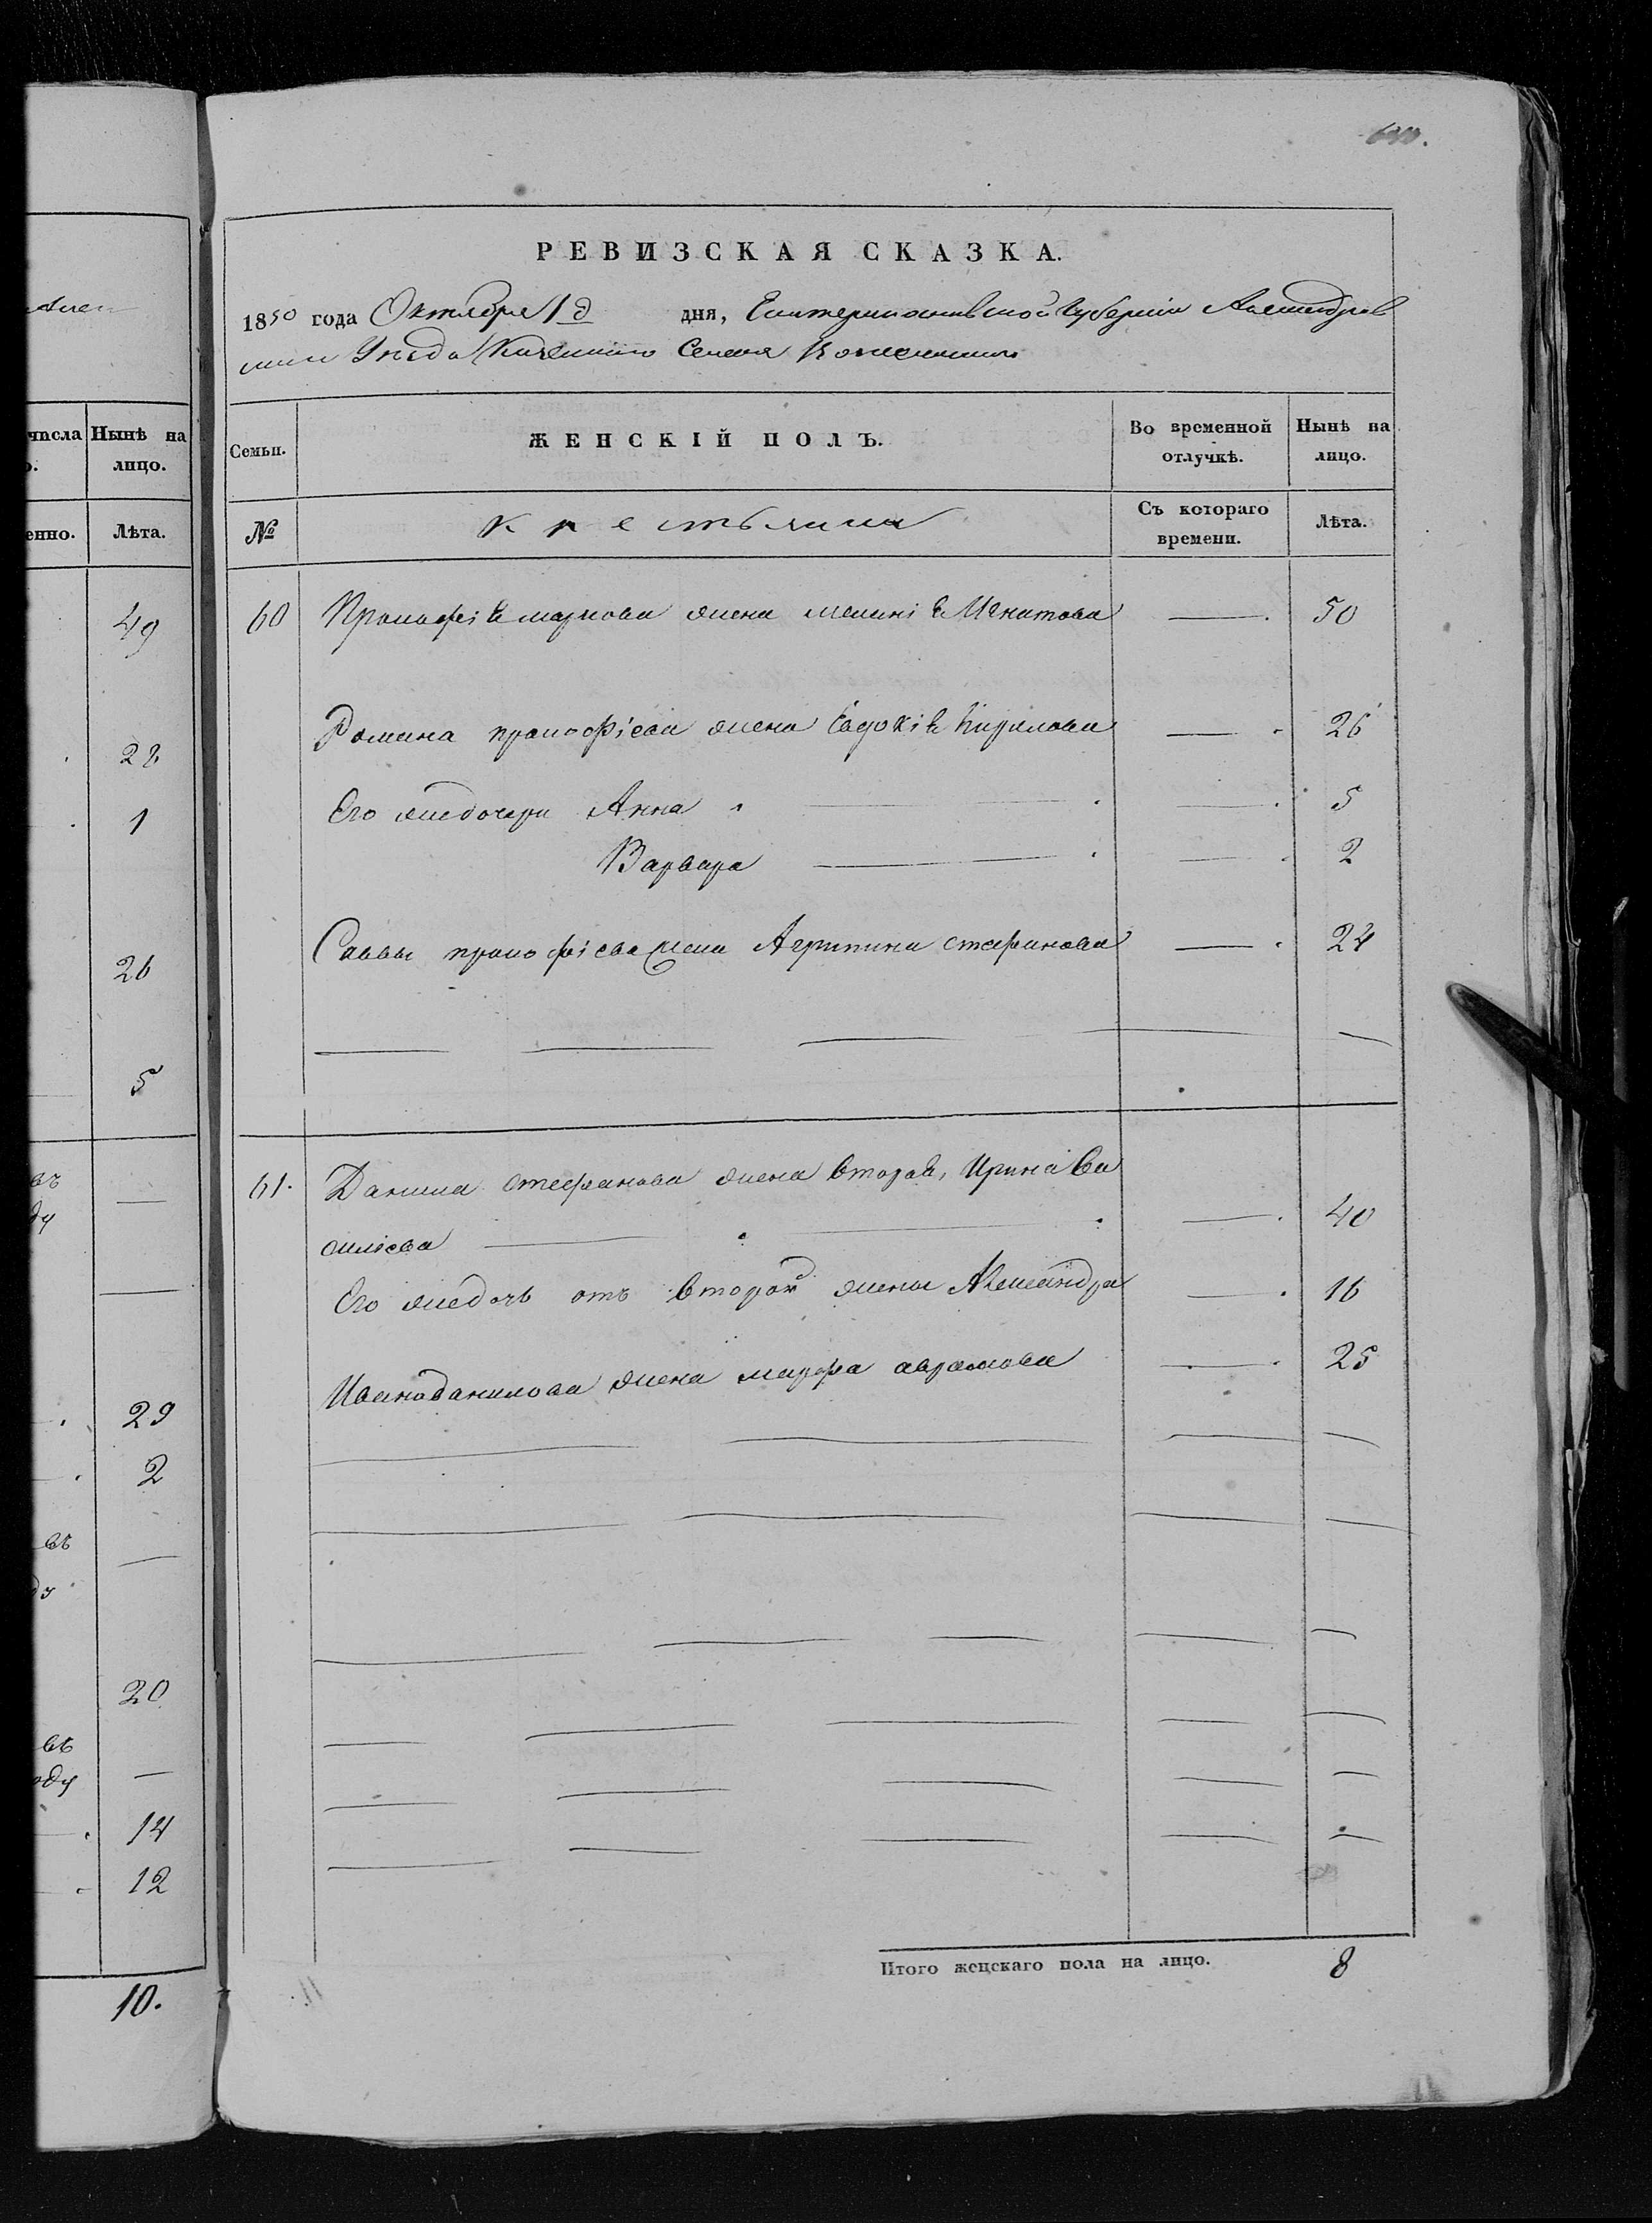 числа Нынѣ на
о. лицо.
енно. Лѣта.
49
28
1
26
5
въ
ду
29
2
въ
ду
20
въ
оду
14
12
10.
РЕВИЗСКАЯ СКАЗКА.
1850 года Октября 1 д дня, Екатеринославской Губернiи Александров
скаго Уѣзда Казеннаго Селенiя
Семьи. ЖЕНСКІЙ ПОЛЪ. Во временной отлучкѣ. Нынѣ на лицо.
№ Крестьянки Съ котораго времени. Лѣта.
60 Прокофiя маркова жена меланiя Игнатова 50
Романа прокофiева жена Євдокiя Кирилова 26
Его жедочери Анна 5
Варвара 2
Саввы прокофiева жена Агрипина стефанова 24
61. Данила стефанова жена вторая, Ирина Ва
силiева 40
Его жедочь отъ второй жены Александра 16
Ивана данилова жена марфа аврамова 25
Итого женскаго пола на лицо. 8